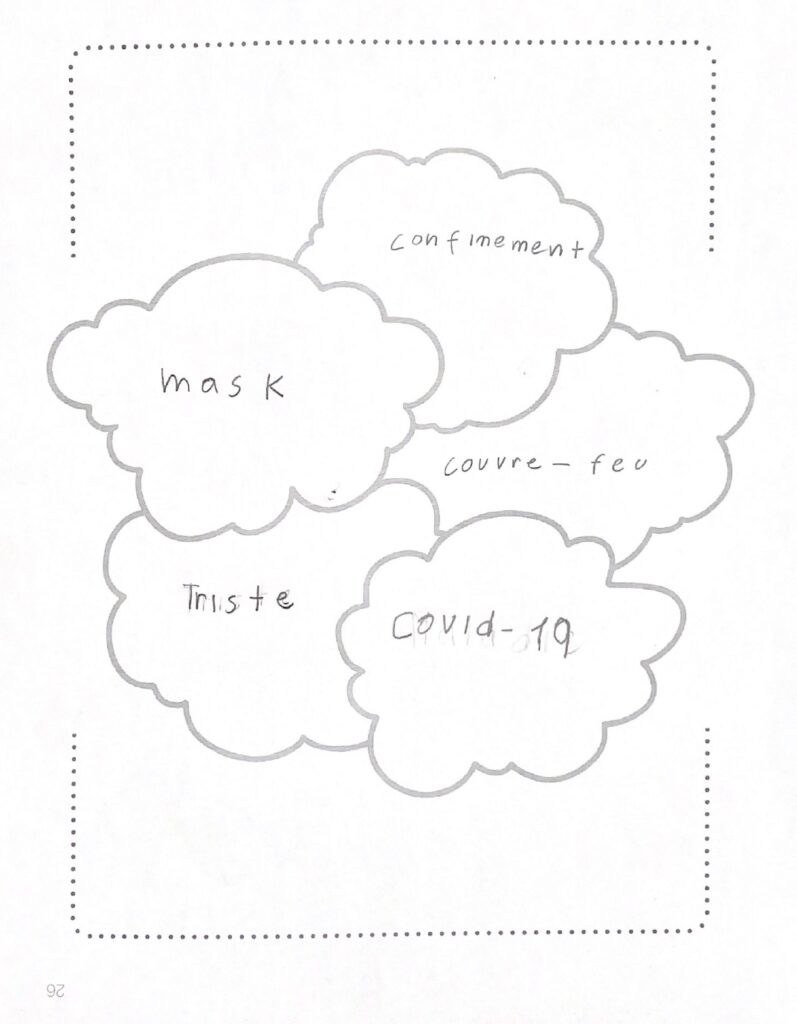 confinement
mask
couvre-feu
Triste
Covid-19
26